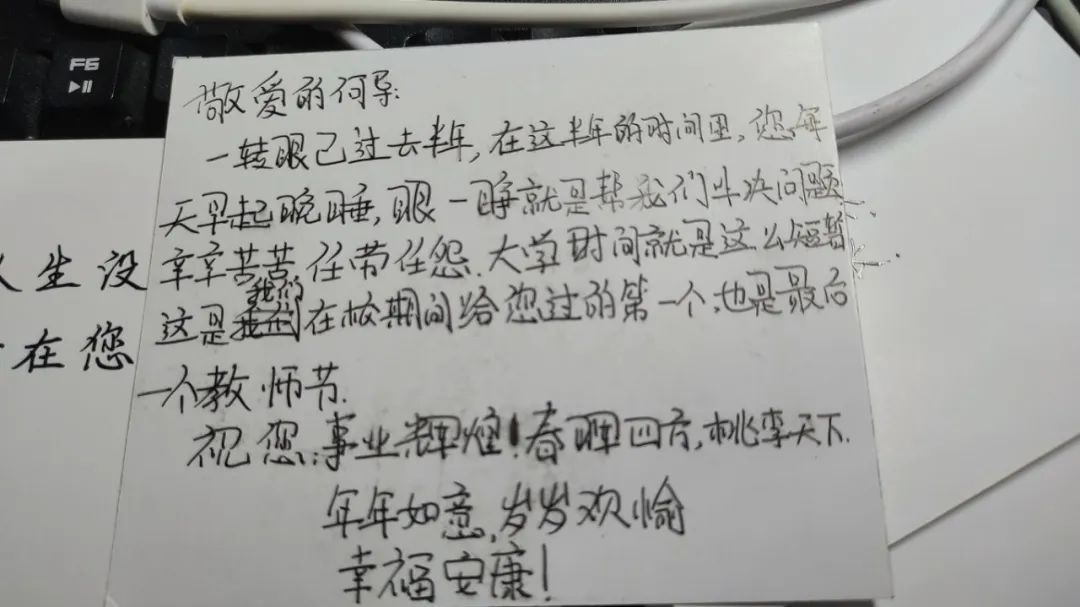 F6
敬爱的何导:
一转眼已过去半年,在这半年的时间里,您每
天早起晚睡,眼一睁就是帮我们解决问题,
辛辛苦苦,任劳任怨.大学时间就是这么短暂.
这是我们在校期间给您过的第一个,也是最后
一个教师节.
祝您:事业辉煌!春晖四方,桃李天下.
年年如意,岁岁欢愉
幸福安康!
生设
在您